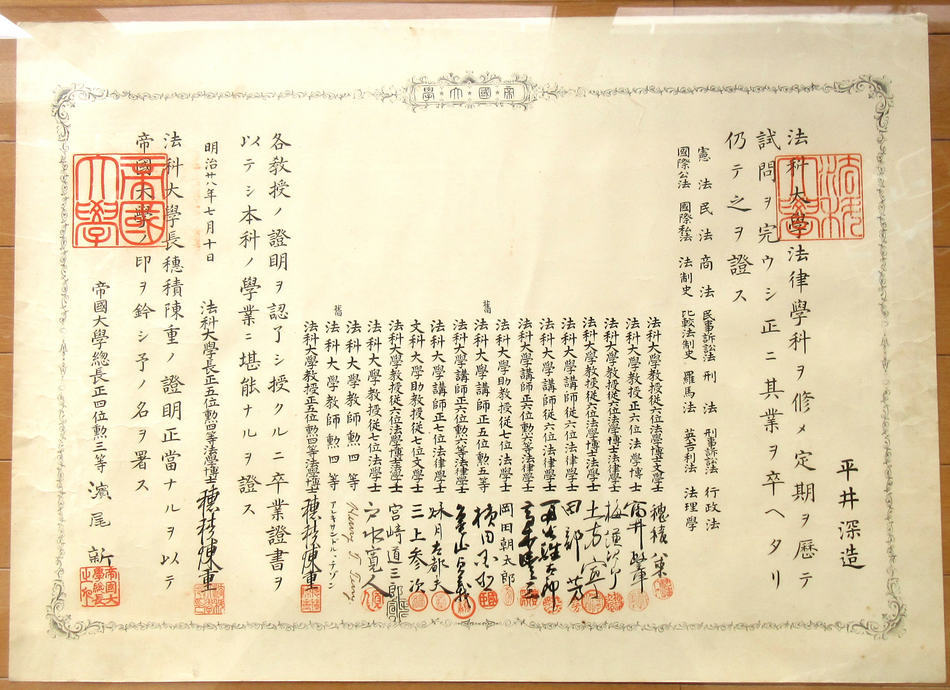 帝國大學
平井深造
法科大學法律學科ヲ修メ定期ヲ歷テ
試問ヲ完ウシ正ニ其業ヲ卒ヘタリ
仍テ之ヲ證ス
憲法 民法 商法 民事訴訟法 刑法 刑事訴訟法 行政法
國際公法 國際私法 法制史 比較法制史 羅馬法 英吉利法 法理學
法科大學教授從六位法學博士文學士 穗積八束
法科大學教授正六位法學博士
法科大學教授從六位法學博士法學士 梅謙次郎
法科大學教授從六位法學博士法學士 土方寧
法科大學講師從六位法律學士 田部芳
法科大學講師從六位法律學士
法科大學講師正六位勲六等法律學士
舊 法科大學講師正五位勲五等
法科大學助教授從七位法學士 岡田朝太郎
法科大學講師正六位勲六等法律學士
法科大學講師正七位法律學士
文科大學助教授從七位文學士 三上参次
法科大學教授從六位法學博士法學士 宮崎道三郎
法科大學教授從七位法學士
法科大學教師勲四等 Henry T. Terry
舊 法科大學教師勲四等 アレキサンドル・テゾン
法科大學教授正五位勲四等法學博士 穗積陳重
各教授ノ證明ヲ認了シ授クルニ卒業證書ヲ
以テシ本科ノ學業ニ堪能ナルヲ證ス
明治廿八年七月十日
法科大學長正五位勲四等法學博士 穗積陳重
法科大學長穗積陳重ノ證明正當ナルヲ以テ
帝國大學ノ印ヲ鈐シ予ノ名ヲ署ス
帝國大學總長正四位勲三等 濱尾新